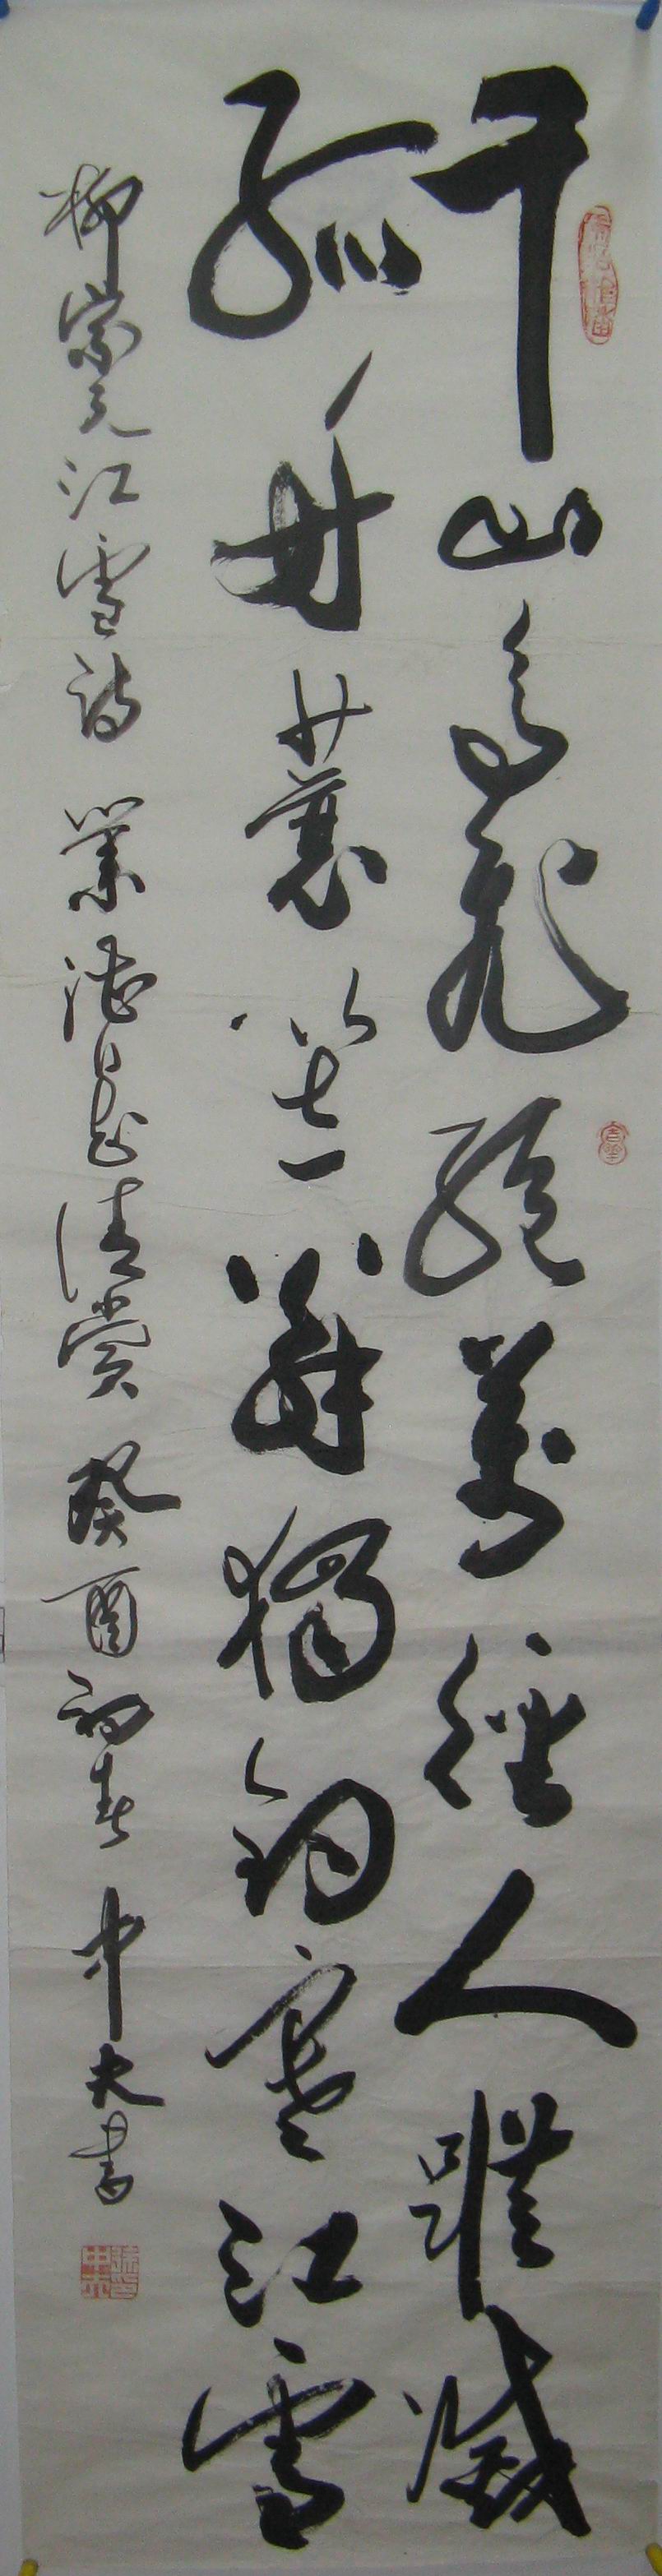 千山鳥飛絕萬徑人蹤滅
孤舟蓑笠翁獨釣寒江雪
柳宗元江雪詩 業 清賞 癸酉初春 中夫書